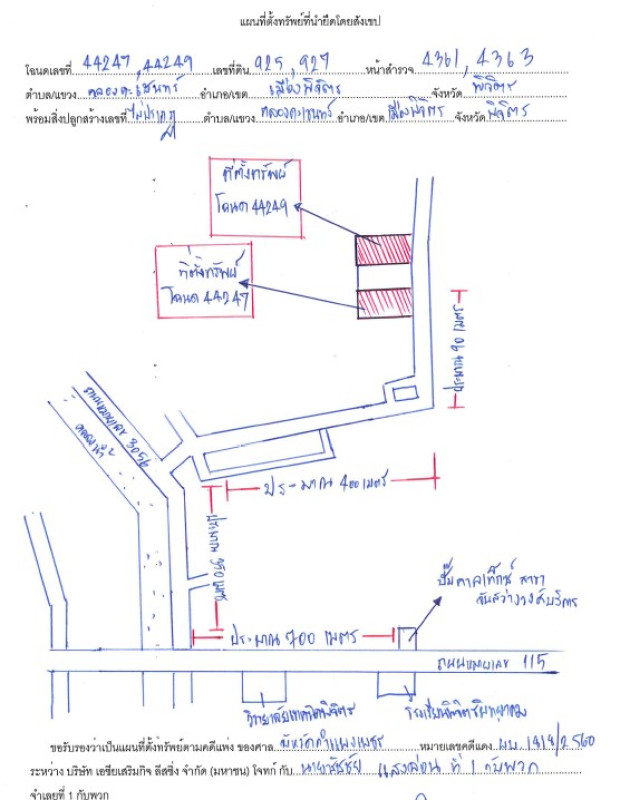 แผนที่ตั้งทรัพย์ที่นำยึดโดยสังเขป
โฉนดเลขที่ 44247, 44249 เลขที่ดิน 925, 927 หน้าสำรวจ 4361, 4363
ตำบล/แขวง คลองคะเชนทร์ อำเภอ/เขต เมืองพิจิตร จังหวัด พิจิตร
พร้อมสิ่งปลูกสร้างเลขที่ ไม่ปรากฏ ตำบล/แขวง คลองคะเชนทร์ อำเภอ/เขต เมืองพิจิตร จังหวัด พิจิตร
ที่ตั้งทรัพย์
โฉนด 44249
ที่ตั้งทรัพย์
โฉนด 44247
ประมาณ 90 เมตร
ถนนหมายเลข 3056
คลองน้ำ
ประมาณ 400 เมตร
ประมาณ 950 เมตร
ปั๊มคาลเท็กซ์ สาขา
จันสว่างวงศ์บริการ
ประมาณ 700 เมตร
ถนนหมายเลข 115
วิทยาลัยเทคนิคพิจิตร
โรงเรียนพิจิตรพิทยาคม
ขอรับรองว่าเป็นแผนที่ตั้งทรัพย์ตามคดีแพ่ง ของศาล จังหวัดกำแพงเพชร หมายเลขคดีแดง ผบ. 1414/2560
ระหว่าง บริษัท เอเซียเสริมกิจ ลีสซิ่ง จำกัด (มหาชน) โจทก์ กับ แสงผ่อน ที่ 1 กับพวก
จำเลยที่ 1 กับพวก